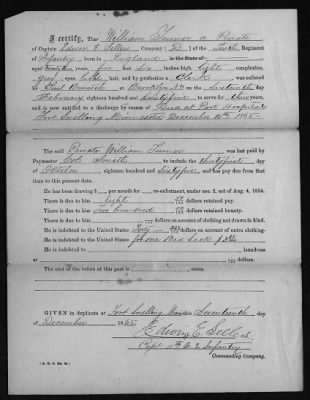 I certify, That William Turner a Private
of Captain Edwin E Sellers Company (D.) of the Tenth Regiment
of Infantry born in England in the State of
aged years, five feet six inches high, light complexion,
grey eyes, hair, and by profession a Clerk was enlisted
by at Brooklyn N.Y. on the day of
February eighteen hundred and sixty five to serve for three years,
and is now entitled to discharge by reason of Died at Post Hospital
Fort Snelling Minnesota December 1865
The said Private William Turner was last paid by
Paymaster to include the thirty first day of
October eighteen hundred and Sixty five, and has pay due from that
time to this present date.
He has been drawing $ per month for re-enlistment, under sec. 2, act of Aug. 4, 1854.
There is due to him eight dollars retained pay.
There is due to him Two hundred dollars retained bounty.
There is due to him dollars on account of clothing not drawn in kind.
He is indebted to the United States dollars on account of extra clothing.
He is indebted to the United States for one Bed Sack
He is indebted to laundress
at dollars.
The cost of the ration at this post is cents.
GIVEN in duplicate at Fort Snelling Minn this Seventeenth day
of December 1865
Edwin E. Sellers
Capt 10th U.S. Infantry
Commanding Company.